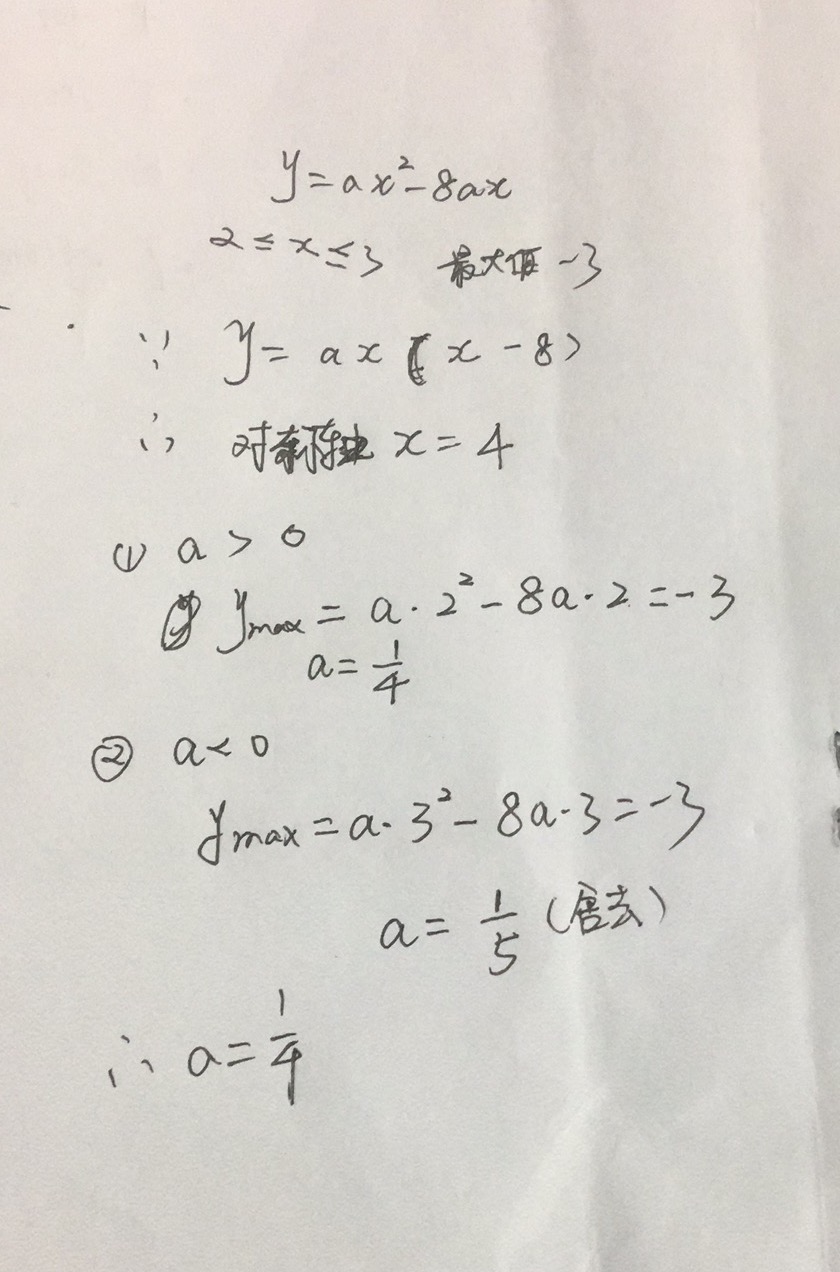 y=ax²-8ax
2≤x≤3 最大值 -3
∵ y=ax(x-8)
∴ 对称轴 x=4
① a>0
y max=a·2²-8a·2=-3
a=1/4
② a<0
y max=a·3²-8a·3=-3
a=1/5 (舍去)
∴ a=1/4